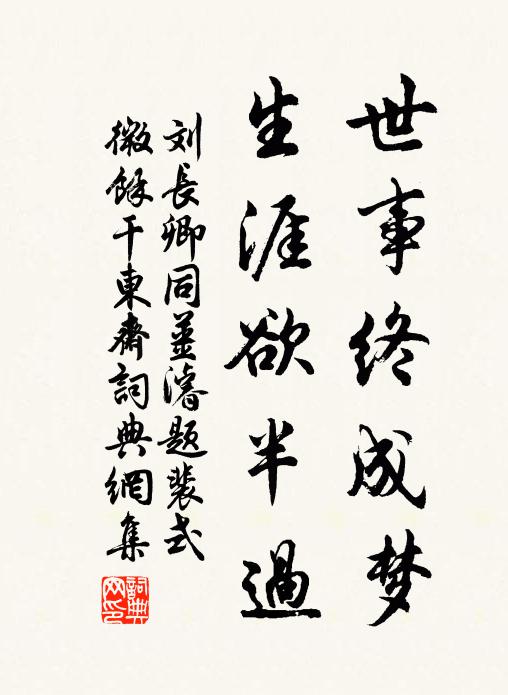 世事终成梦
生涯欲半過
刘長卿同姜濬题裴式
微餘干東齋詞典網集
詞典
网印